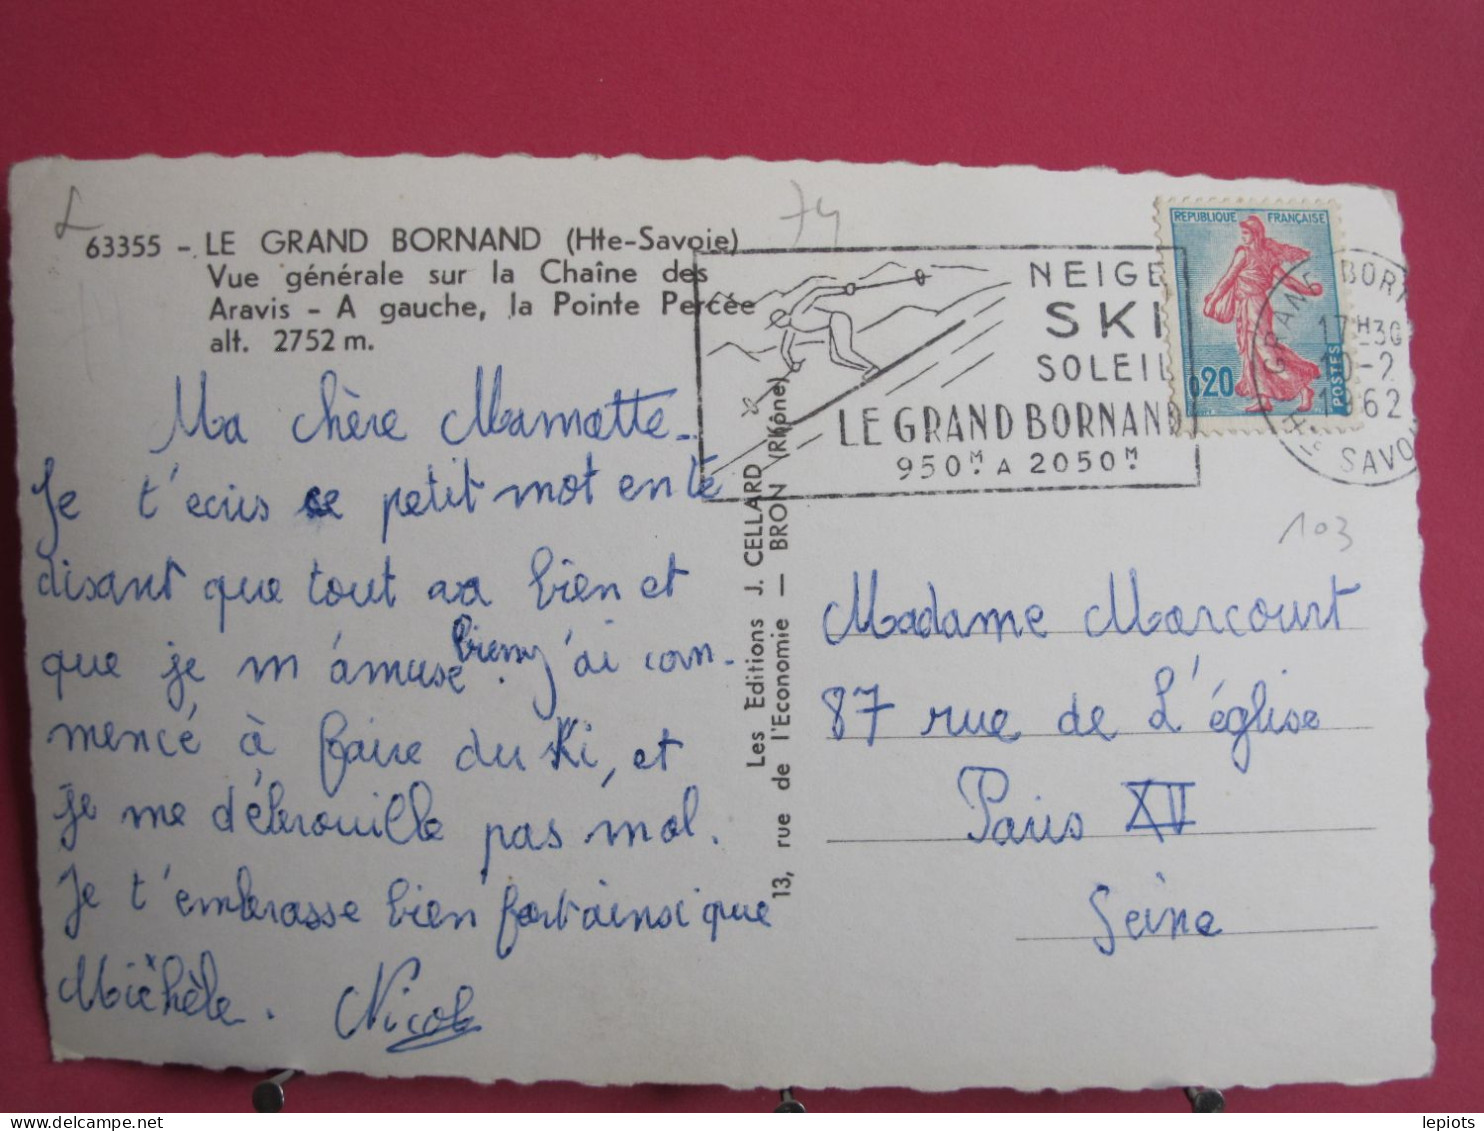 63355 - LE GRAND BORNAND (Hte-Savoie)
Vue générale sur la Chaîne des
Aravis - A gauche, la Pointe Percée
alt. 2752 m.
74
REPUBLIQUE FRANÇAISE
0,20
POSTES
NEIGE
SKI
SOLEIL
LE GRAND BORNAND
950M A 2050M
GRAND BORN
17H30
10-2
1962
Hte SAVOI
103
Ma chère Mamette.
Je t'ecris ce petit mot en te
disant que tout va bien et
que je m'amuse bien, j'ai com-
mencé à faire du ski, et
je me débrouille pas mal.
Je t'embrasse bien fort ainsi que
Michèle. Nicole
Les Editions J. CELLARD
13, rue de l'Economie — BRON (Rhône)
Madame Marcourt
87 rue de L'église
Paris XV
Seine
lepiots